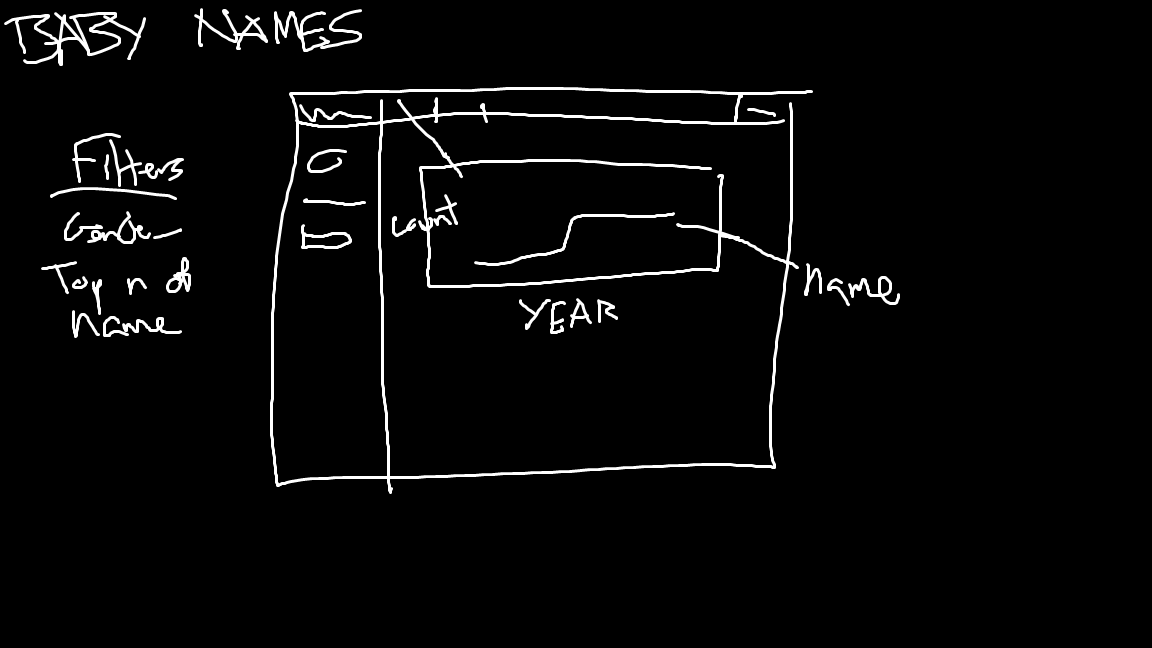 BABY NAMES
Filters
Gender
Top n of
name
count
name
YEAR